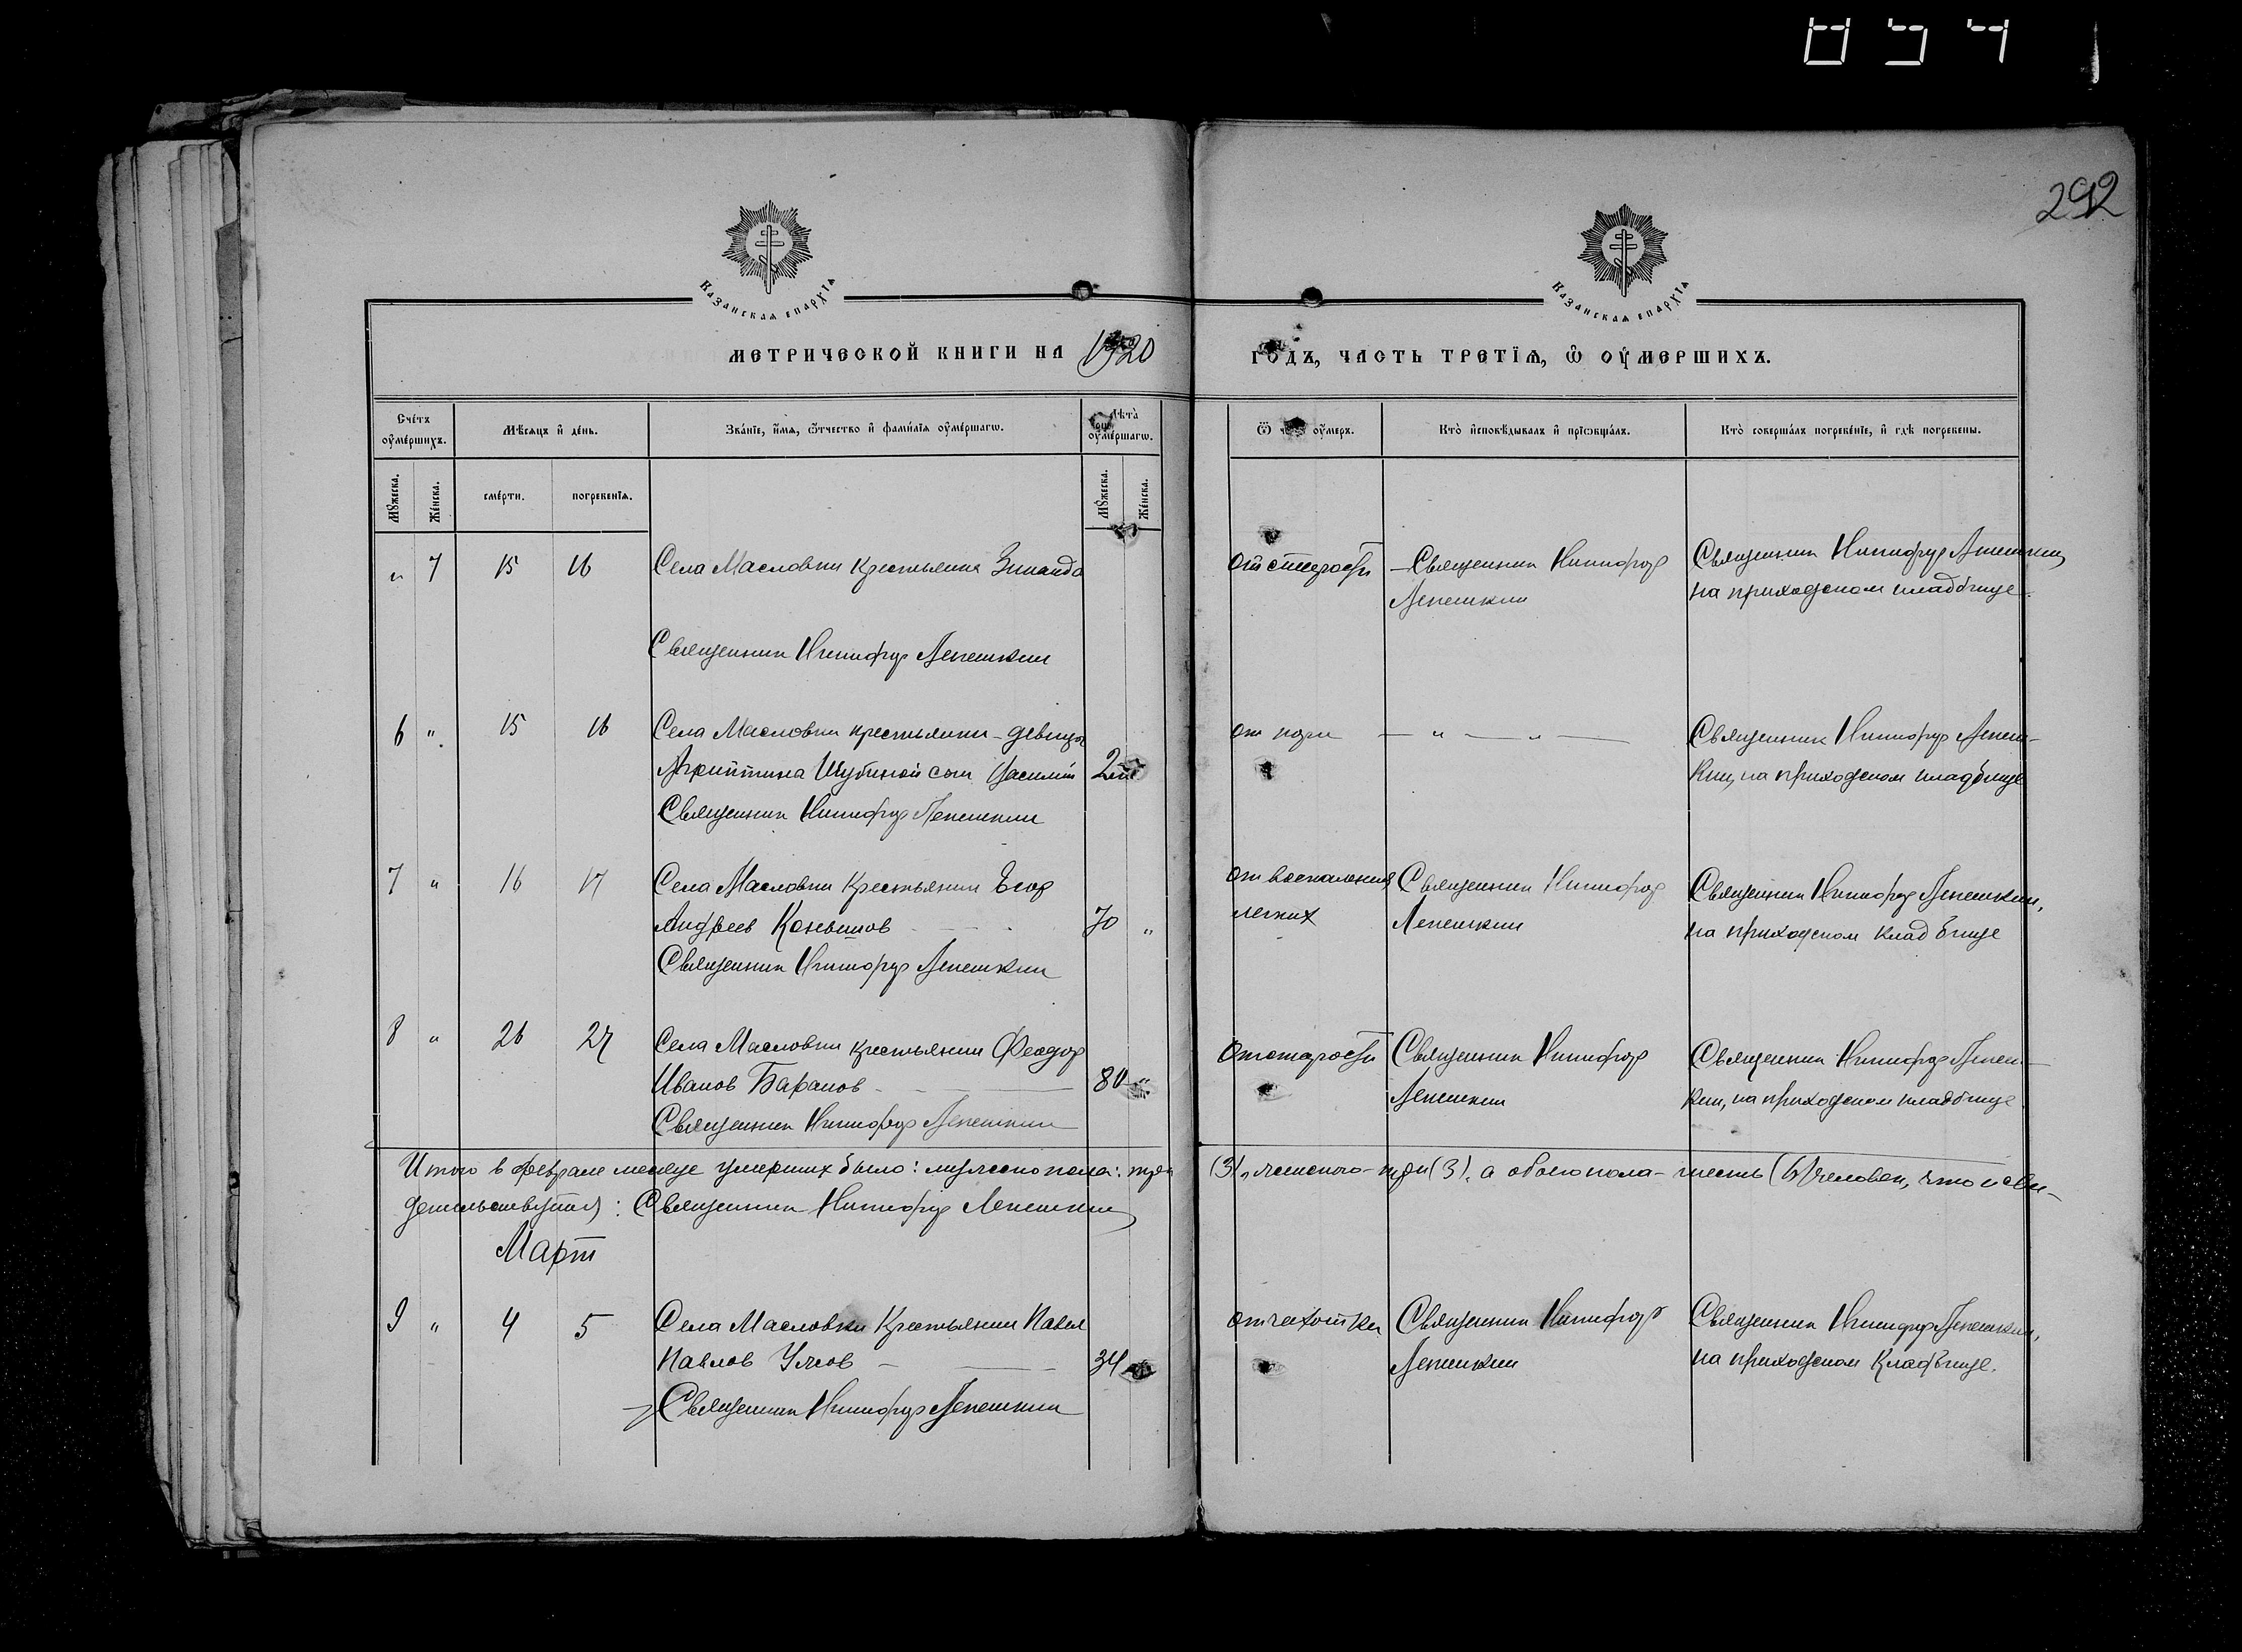 854
292
Казанская епархїѧ
Казанская епархїѧ
МЕТРИЧЕСКОЙ КНИГИ НА 1920
ГОДЪ, ЧАСТЬ ТРЕТЇѦ, Ѿ ОУМЕРШИХЪ.
Счетъ оумершихъ.
Мѣсѧцъ и день.
Званїе, имѧ, ѿтчество и фамилїѧ оумершагѡ.
Лѣта оумершагѡ.
Ѿ чегѡ оумеръ.
Кто исповѣдывалъ и прїѡбщалъ.
Кто совершалъ погребенїе, и гдѣ погребены.
Мꙋжеска.
Женска.
смерти.
погребенїѧ.
Мꙋжеска.
Женска.
" 7 15 16 Села Масловки крестьянка от старости Священник Никифор Священник Никифор Лепешкин,
Лепешкин на приходском кладбище.
Священник Никифор Лепешкин
6 " 15 16 Села Масловки крестьянки-девицы от кори — " — " — Священник Никифор Лепеш-
Агриппина Шубиной сын Василий 2 кин, на приходском кладбище
Священник Никифор Лепешкин
7 " 16 17 Села Масловки крестьянин Егор от воспаления Священник Никифор Священник Никифор Лепешкин,
Андреев Конышов 70 " легких Лепешкин на приходском кладбище
Священник Никифор Лепешкин
8 " 26 27 Села Масловки крестьянин Феодор от старости Священник Никифор Священник Никифор Лепеш-
Иванов Баранов 80 " Лепешкин кин, на приходском кладбище
Священник Никифор Лепешкин
Итого в феврале месяце умерших было: мужеского пола: три (3), женского-три (3), а обоего пола-шесть (6) человек, что и сви-
детельствуют: Священник Никифор Лепешкин
Март
9 " 4 5 Села Масловки Крестьянин Павел от чахотки Священник Никифор Священник Никифор Лепешкин,
Павлов 34 Лепешкин на приходском кладбище.
Священник Никифор Лепешкин